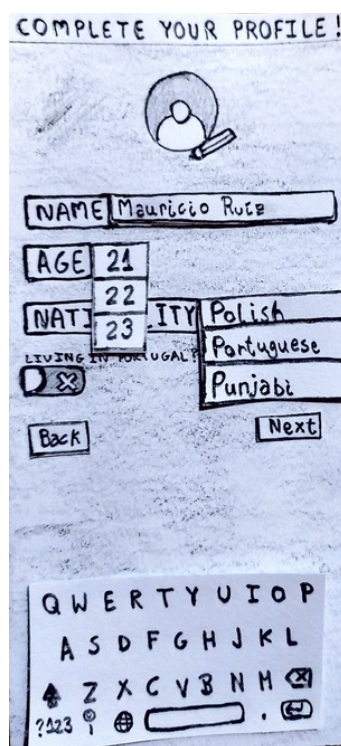 COMPLETE YOUR PROFILE!
NAME Mauricio Ruiz
AGE 21
22
23
NATI ITY
Polish
Portuguese
Punjabi
LIVING IN PORTUGAL?
Back
Next
Q W E R T Y U I O P
A S D F G H J K L
Z X C V B N M
?123 .